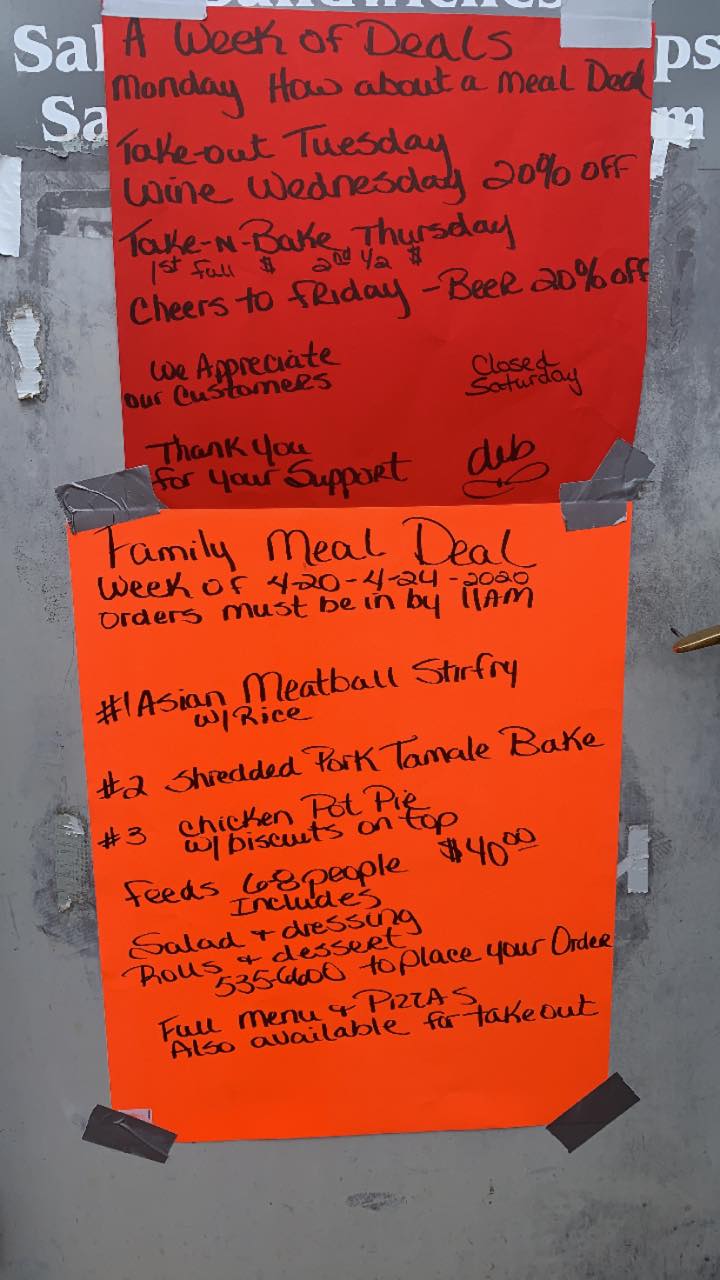 Sandwiches
Sal ps
Sa m
A Week of Deals
Monday How about a Meal Deal
Take-out Tuesday
Wine Wednesday 20% off
Take-N-Bake Thursday
1st full $ 2nd 1/2 $
Cheers to Friday - Beer 20% off
We Appreciate
our Customers
Closed
Saturday
Thank you
for your Support
deb
Family Meal Deal
Week of 4-20-4-24-2020
orders must be in by 11AM
#1 Asian Meatball Stirfry
w/ Rice
#2 Shredded Pork Tamale Bake
#3 chicken Pot Pie
w/ biscuits on top
$40.00
feeds 6-8 people
Includes
Salad + dressing
Rolls + dessert
535-6600 to place your Order
Full Menu + Pizzas
Also available for takeout